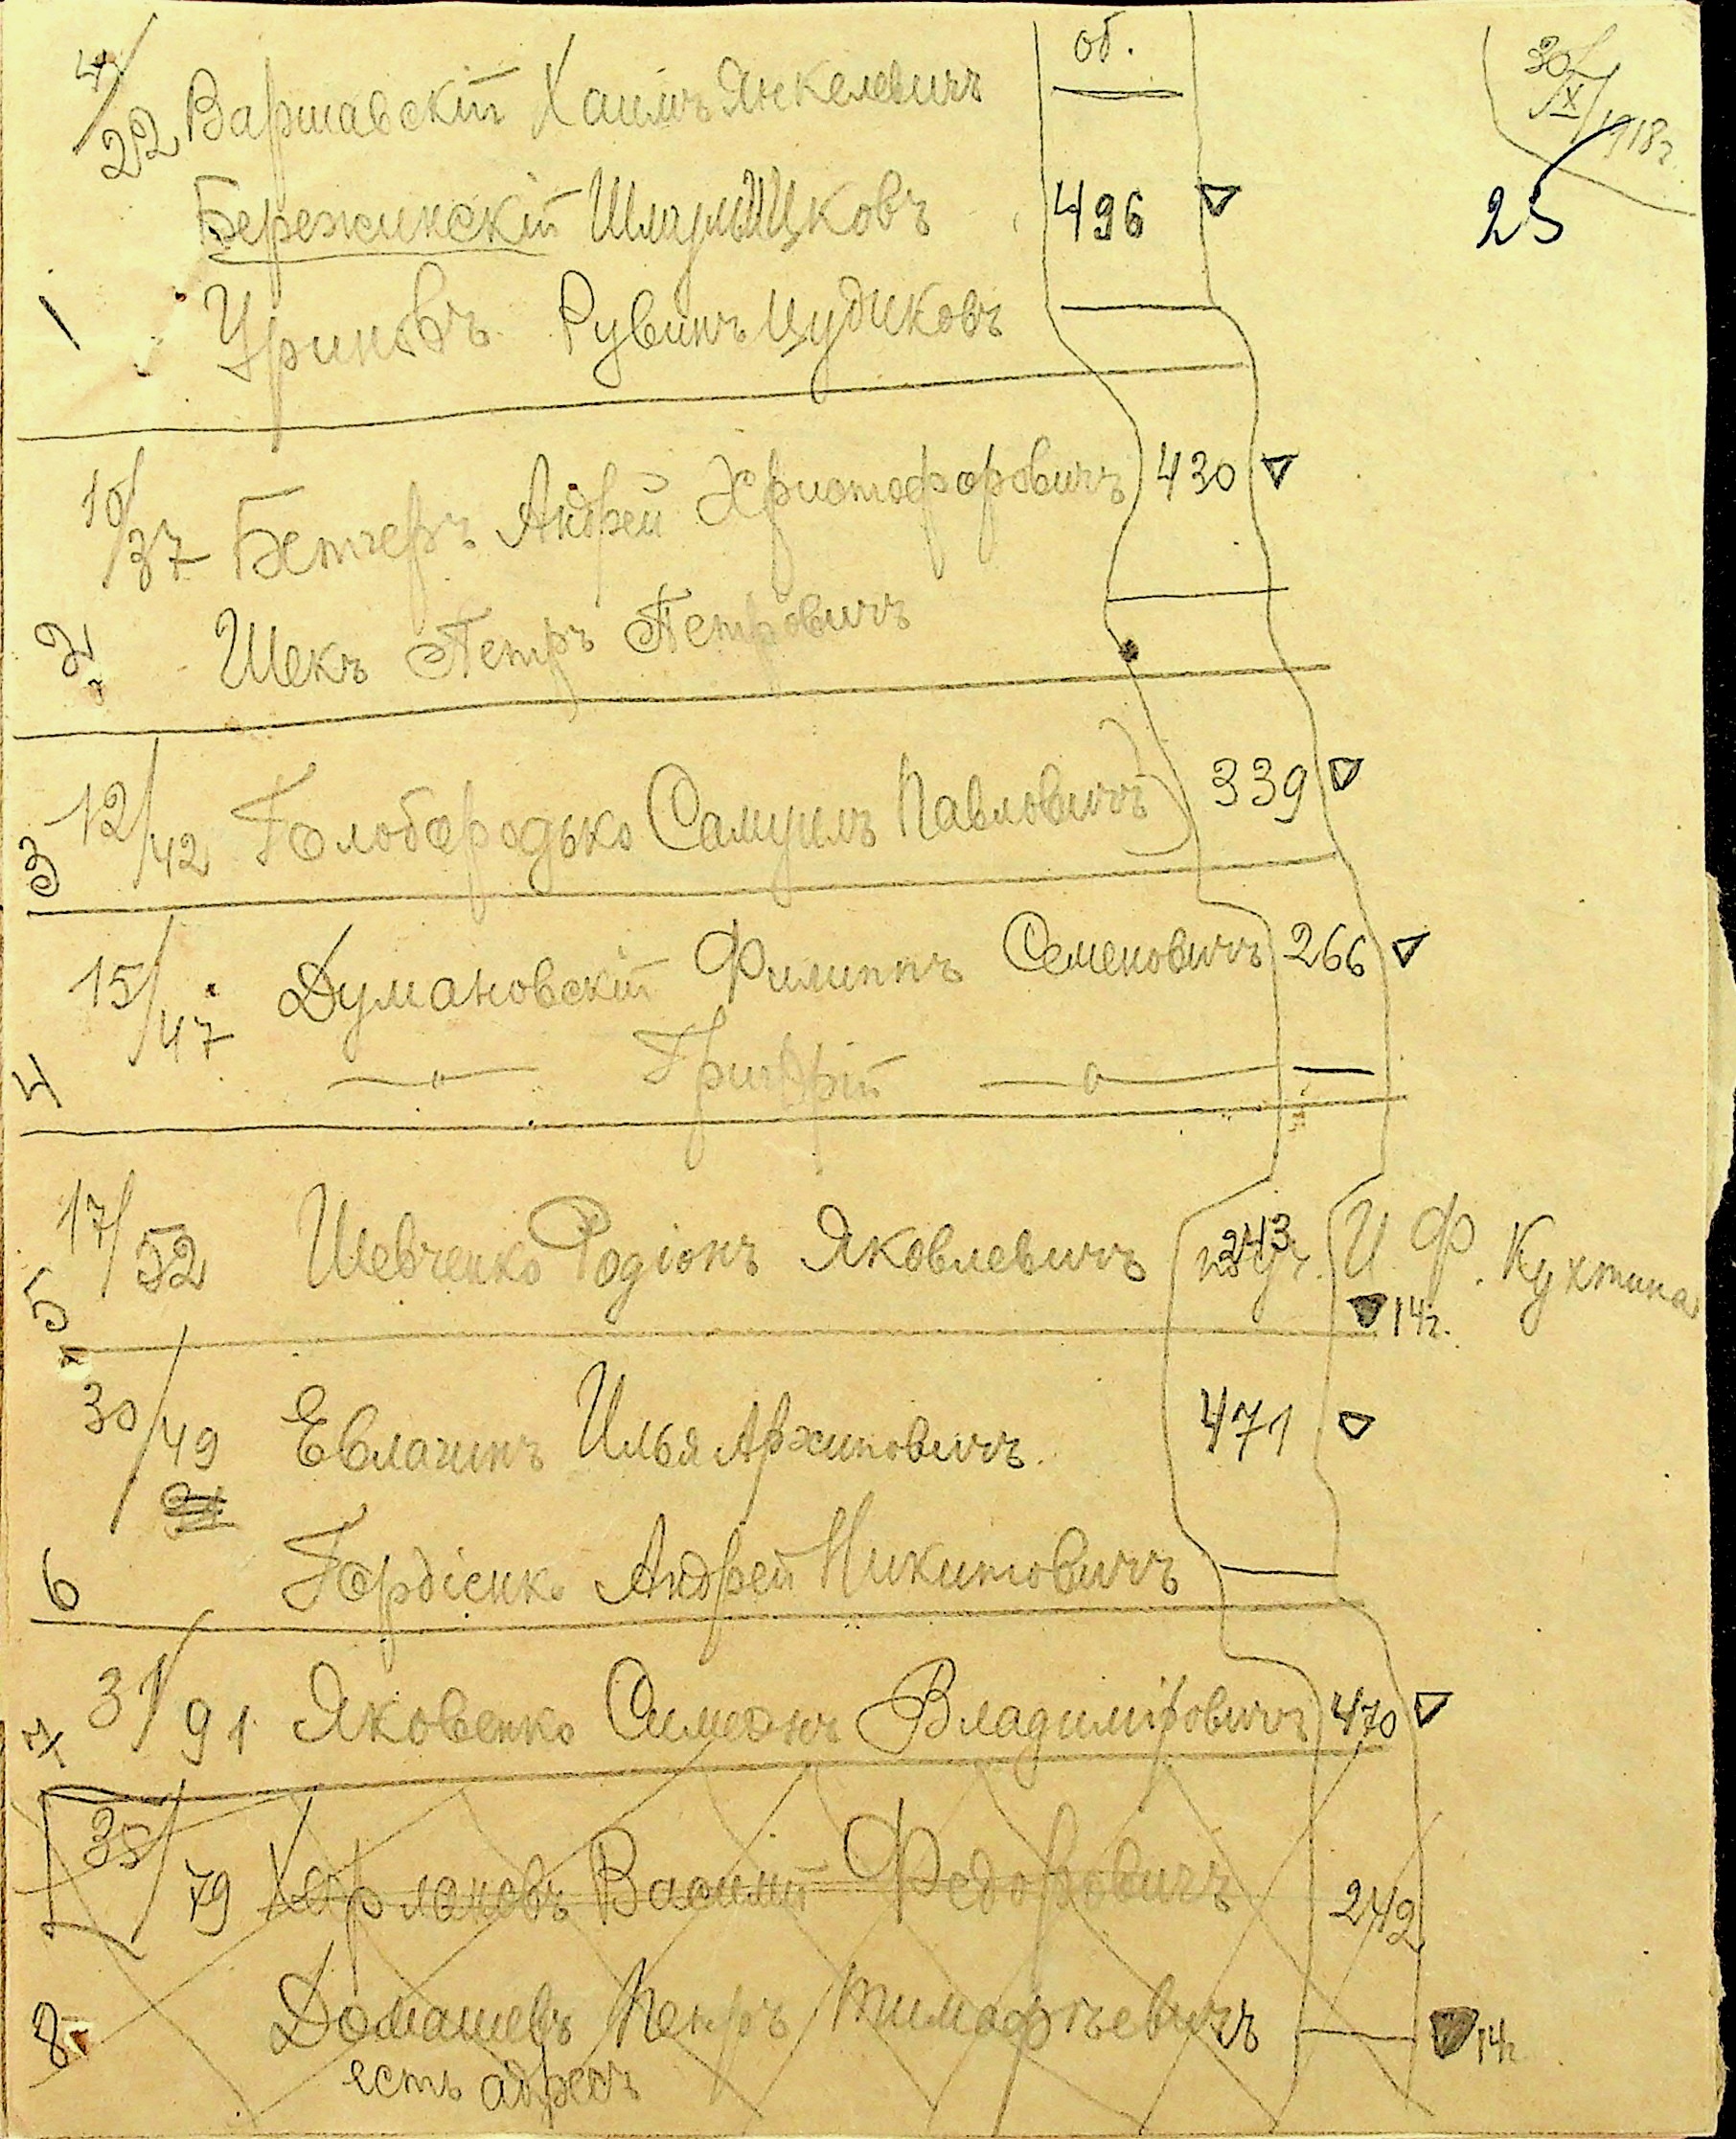 об.
30/X/1918г.
25
4/22 Варшавскій Хаимъ Янкелевичъ
Бережинскій Шлиома Ицковъ 496
1 Уриновъ Рувинъ Иудиковъ
10/37 Бетчеръ Андрей Христофоровичъ 430
2 Шекъ Петръ Петровичъ
3 12/42 Голобородько (Самуилъ Павловичъ) 339
15/47 Думановскій Филиппъ Семеновичъ 266
4 —"— Григорій —"—
5 17/52 Шевченко Родіонъ Яковлевичъ 243 И. Ф. Кухтина
14г.
30/49 Евлагинъ Илья Архиповичъ. 471
6 Гордіенко Андрей Никитовичъ
7 31/91 Яковенко Симеонъ Владиміровичъ 470
35/79 Харламовъ Василій Федоровичъ 242
8 Домашевъ Петръ Тимофѣевичъ 14г.
есть адресъ